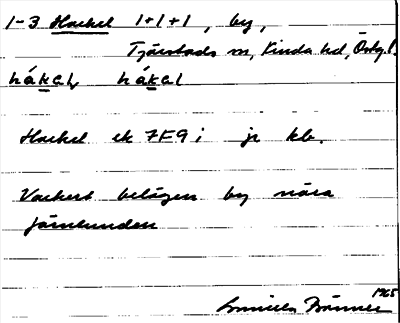 1-3 Hackel 1+1+1, by,
Tjärstads sn, Kinda hd, Östg.l.
hákel, hákel
Hackel ek 7F9i jr kb.
Vackert belägen by nära
Järnlunden
1965